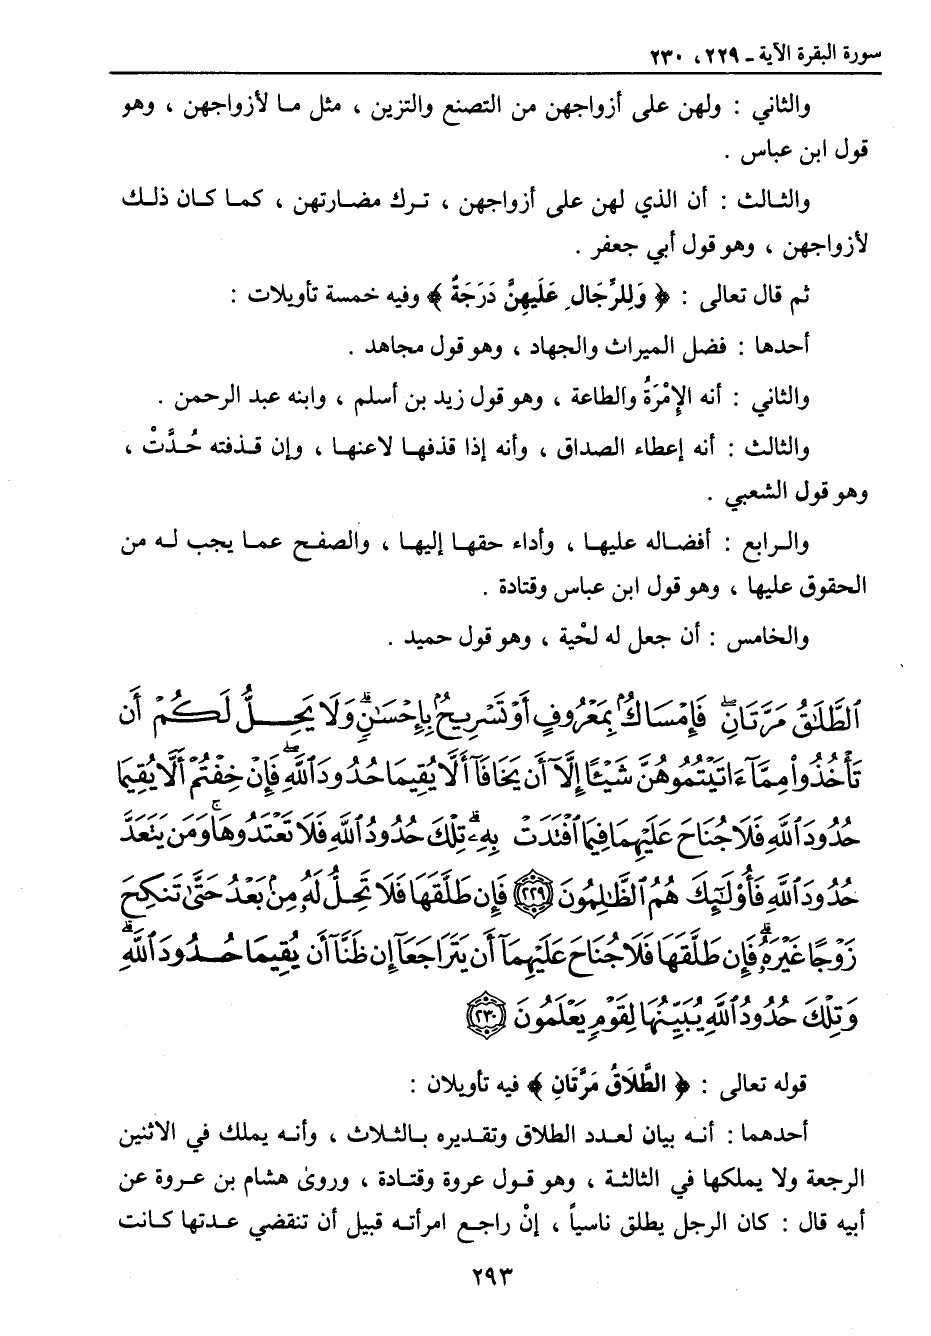 سورة البقرة الآية ـ ٢٢٩، ٢٣٠
والثاني : ولهن على أزواجهن من التصنع والتزين ، مثل ما لأزواجهن ، وهو
قول ابن عباس .
والثالث : أن الذي لهن على أزواجهن ، ترك مضارتهن ، كما كان ذلك
لأزواجهن ، وهو قول أبي جعفر .
ثم قال تعالى : ﴿ وَلِلرِّجَالِ عَلَيهِنَّ دَرَجَةٌ ﴾ وفيه خمسة تأويلات :
أحدها : فضل الميراث والجهاد ، وهو قول مجاهد .
والثاني : أنه الإِمْرَةُ والطاعة ، وهو قول زيد بن أسلم ، وابنه عبد الرحمن .
والثالث : أنه إعطاء الصداق ، وأنه إذا قذفها لاعنها ، وإن قذفته حُدَّتْ ،
وهو قول الشعبي .
والرابع : أفضاله عليها ، وأداء حقها إليها ، والصفح عما يجب له من
الحقوق عليها ، وهو قول ابن عباس وقتادة .
والخامس : أن جعل له لحْية ، وهو قول حميد .
ٱلطَّلَٰقُ مَرَّتَانِۖ فَإِمْسَاكُۢ بِمَعْرُوفٍ أَوْ تَسْرِيحُۢ بِإِحْسَٰنٖۗ وَلَا يَحِلُّ لَكُمْ أَن
تَأْخُذُوا۟ مِمَّآ ءَاتَيْتُمُوهُنَّ شَيْـًٔا إِلَّآ أَن يَخَافَآ أَلَّا يُقِيمَا حُدُودَ ٱللَّهِۖ فَإِنْ خِفْتُمْ أَلَّا يُقِيمَا
حُدُودَ ٱللَّهِ فَلَا جُنَاحَ عَلَيْهِمَا فِيمَا ٱفْتَدَتْ بِهِۦۗ تِلْكَ حُدُودُ ٱللَّهِ فَلَا تَعْتَدُوهَاۚ وَمَن يَتَعَدَّ
حُدُودَ ٱللَّهِ فَأُو۟لَٰٓئِكَ هُمُ ٱلظَّٰلِمُونَ ﴿٢٢٩﴾ فَإِن طَلَّقَهَا فَلَا تَحِلُّ لَهُۥ مِنۢ بَعْدُ حَتَّىٰ تَنكِحَ
زَوْجًا غَيْرَهُۥۗ فَإِن طَلَّقَهَا فَلَا جُنَاحَ عَلَيْهِمَآ أَن يَتَرَاجَعَآ إِن ظَنَّآ أَن يُقِيمَا حُدُودَ ٱللَّهِۗ
وَتِلْكَ حُدُودُ ٱللَّهِ يُبَيِّنُهَا لِقَوْمٍ يَعْلَمُونَ ﴿٢٣٠﴾
قوله تعالى : ﴿ الطَّلَاقُ مَرَّتَانِ ﴾ فيه تأويلان :
أحدهما : أنه بيان لعدد الطلاق وتقديره بالثلاث ، وأنه يملك في الاثنين
الرجعة ولا يملكها في الثالثة ، وهو قول عروة وقتادة ، وروىٰ هشام بن عروة عن
أبيه قال : كان الرجل يطلق ناسياً ، إنْ راجع امرأته قبيل أن تنقضي عدتها كانت
٢٩٣